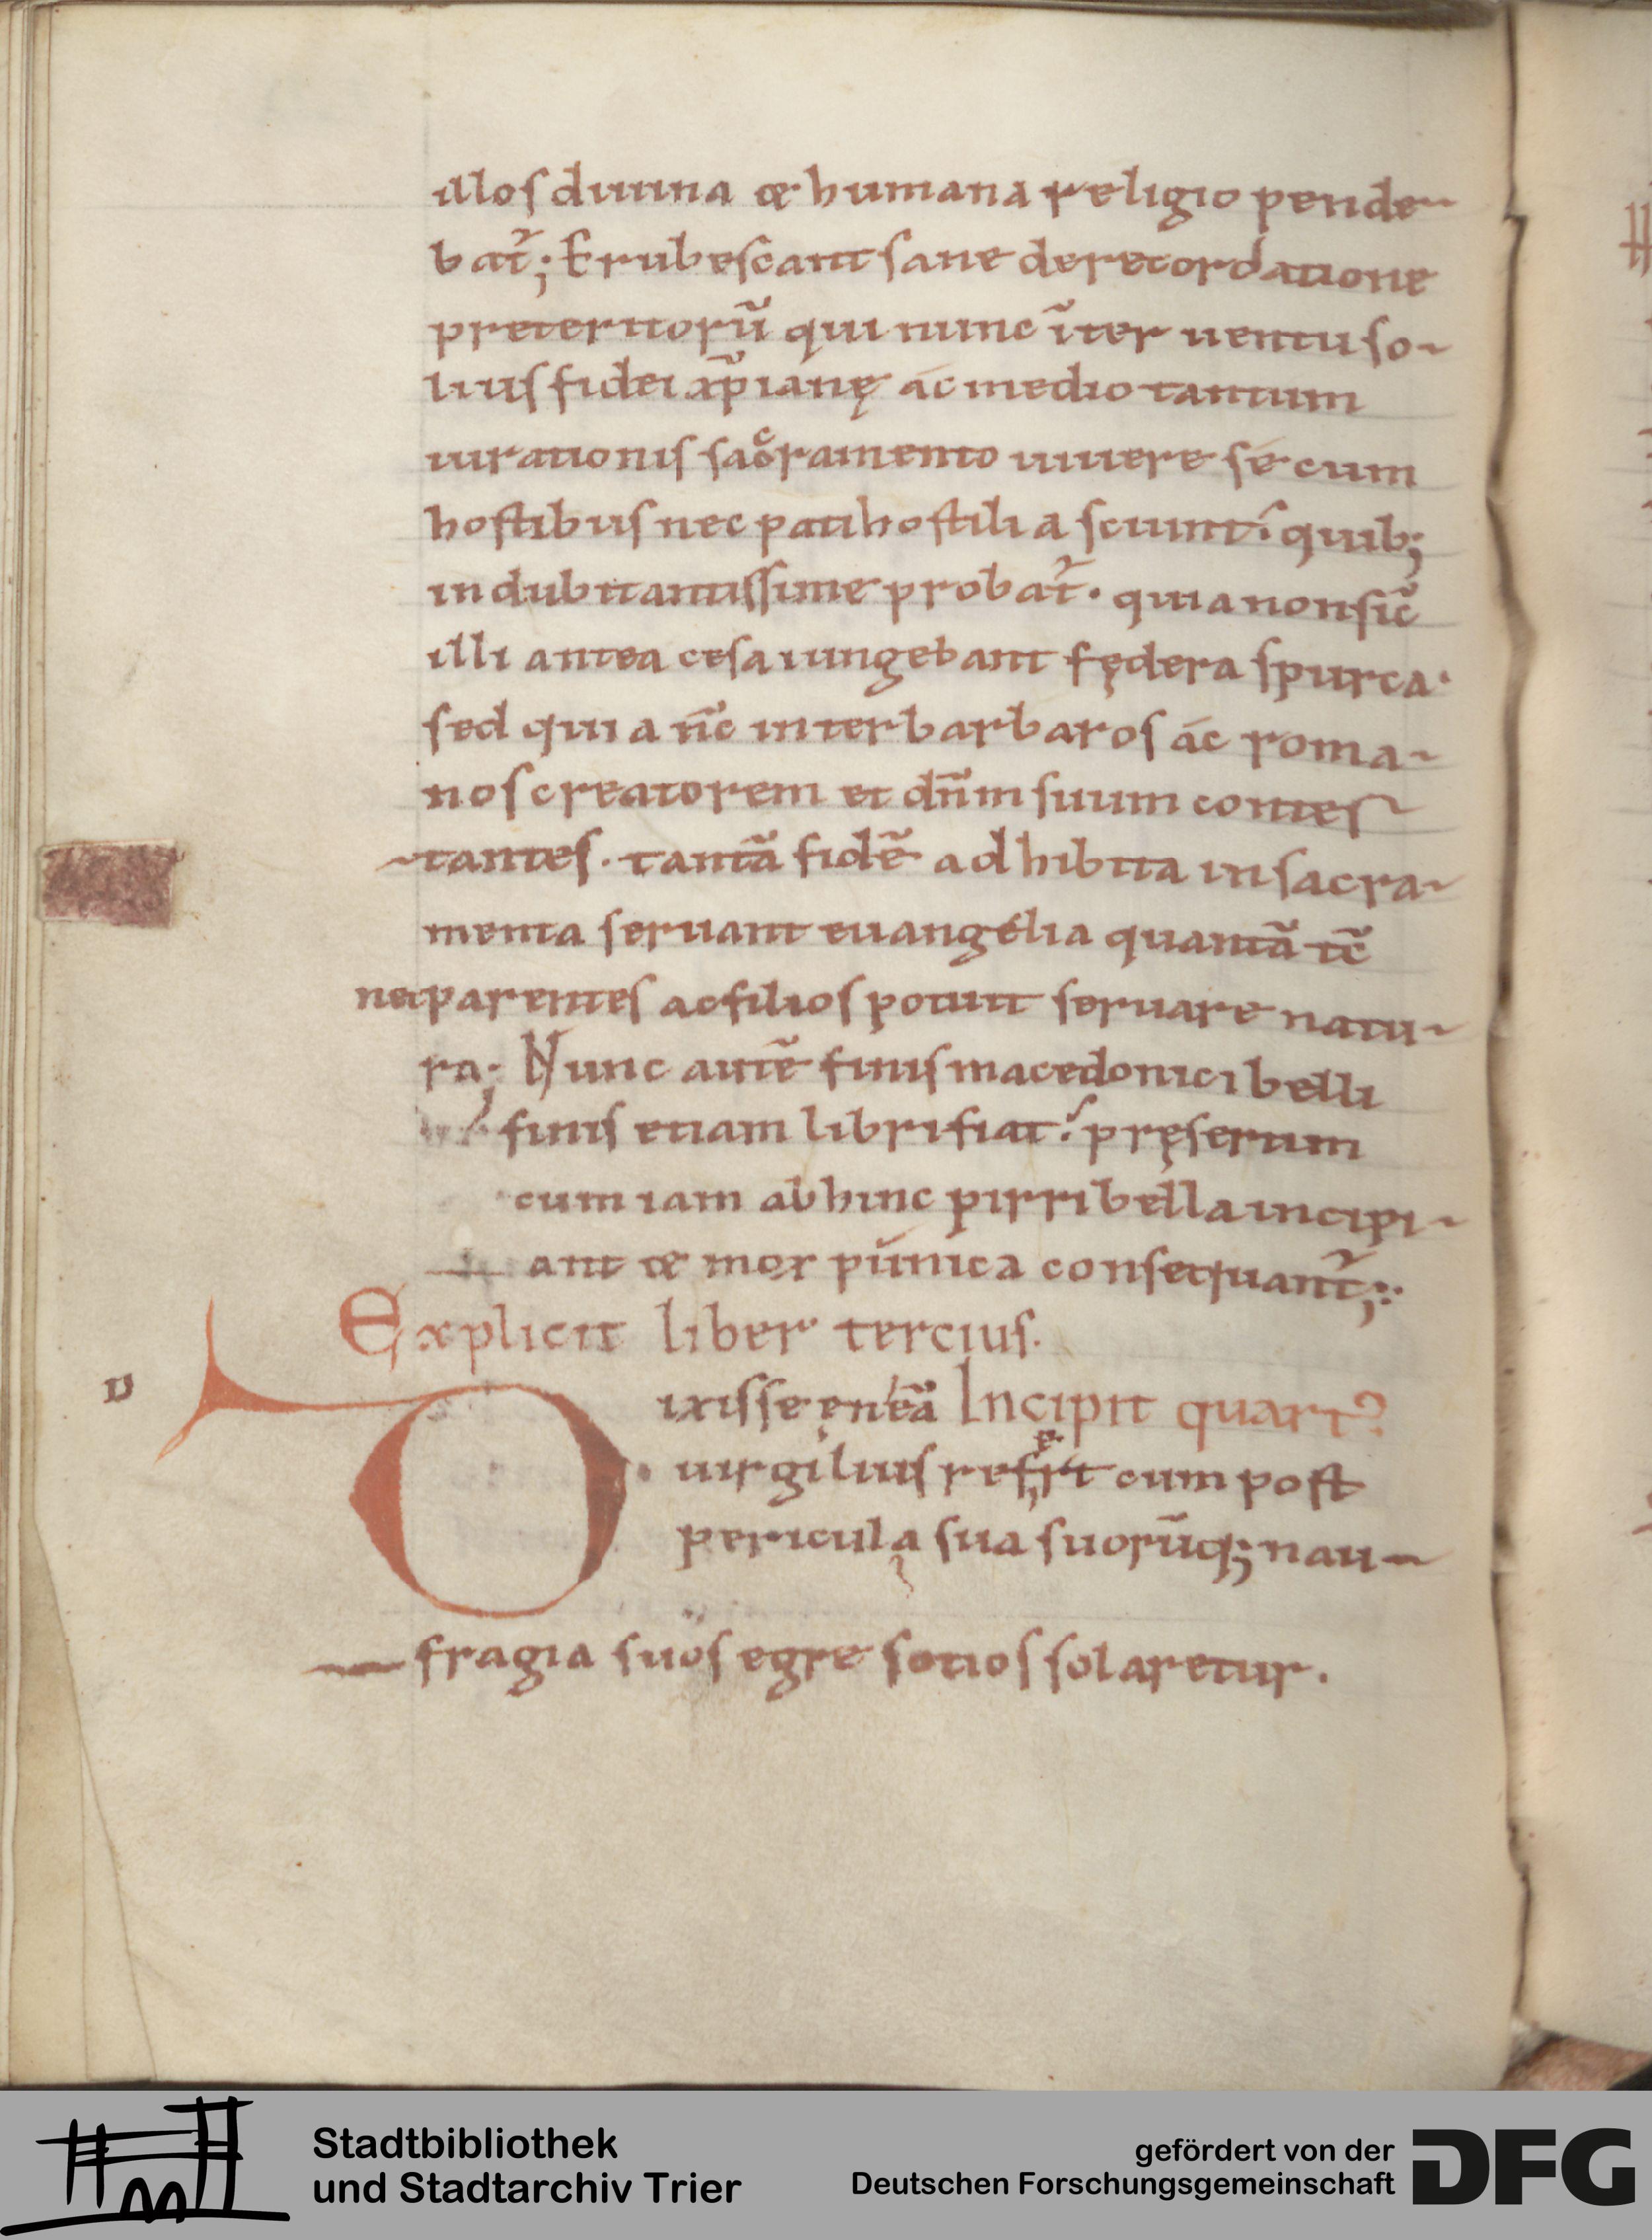 illos diuina & humana religio pende-
bat᷑; Erubescant sane de recordatione
preteritorũ qui nunc ĩter uentu so-
lius fidei xp̃ianę ác medio tantum
iurationis sacramento uiuere sé cum
hostibus nec pati hostilia sciunt. quib;
indubitantissime probat᷑. quia non sic̃
illi antea cesa iungebant fędera spurca.
sed quia nc̃ inter barbaros ác roma-
nos creatorem et dñm suum contes-
-tantes. tantã fidẽ adhibita in sacra-
menta seruant euangélia quantã tc̃
nec parentes ac filios potuit seruare natu-
ra; Nunc autẽ finis macedonici belli
finis etiam libri fiat. pręsertim
cum iam abhinc pirri bella incipi-
ant & mox púnica consequant᷑;
Explicit liber tercius.
Incipit quart᷒
D
Dixisse ęneã
uirgilius refert cum post
pericula sua suorũq; nau-
fragia suos egre sotios solaretur.
Stadtbibliothek
und Stadtarchiv Trier
gefördert von der
Deutschen Forschungsgemeinschaft
DFG